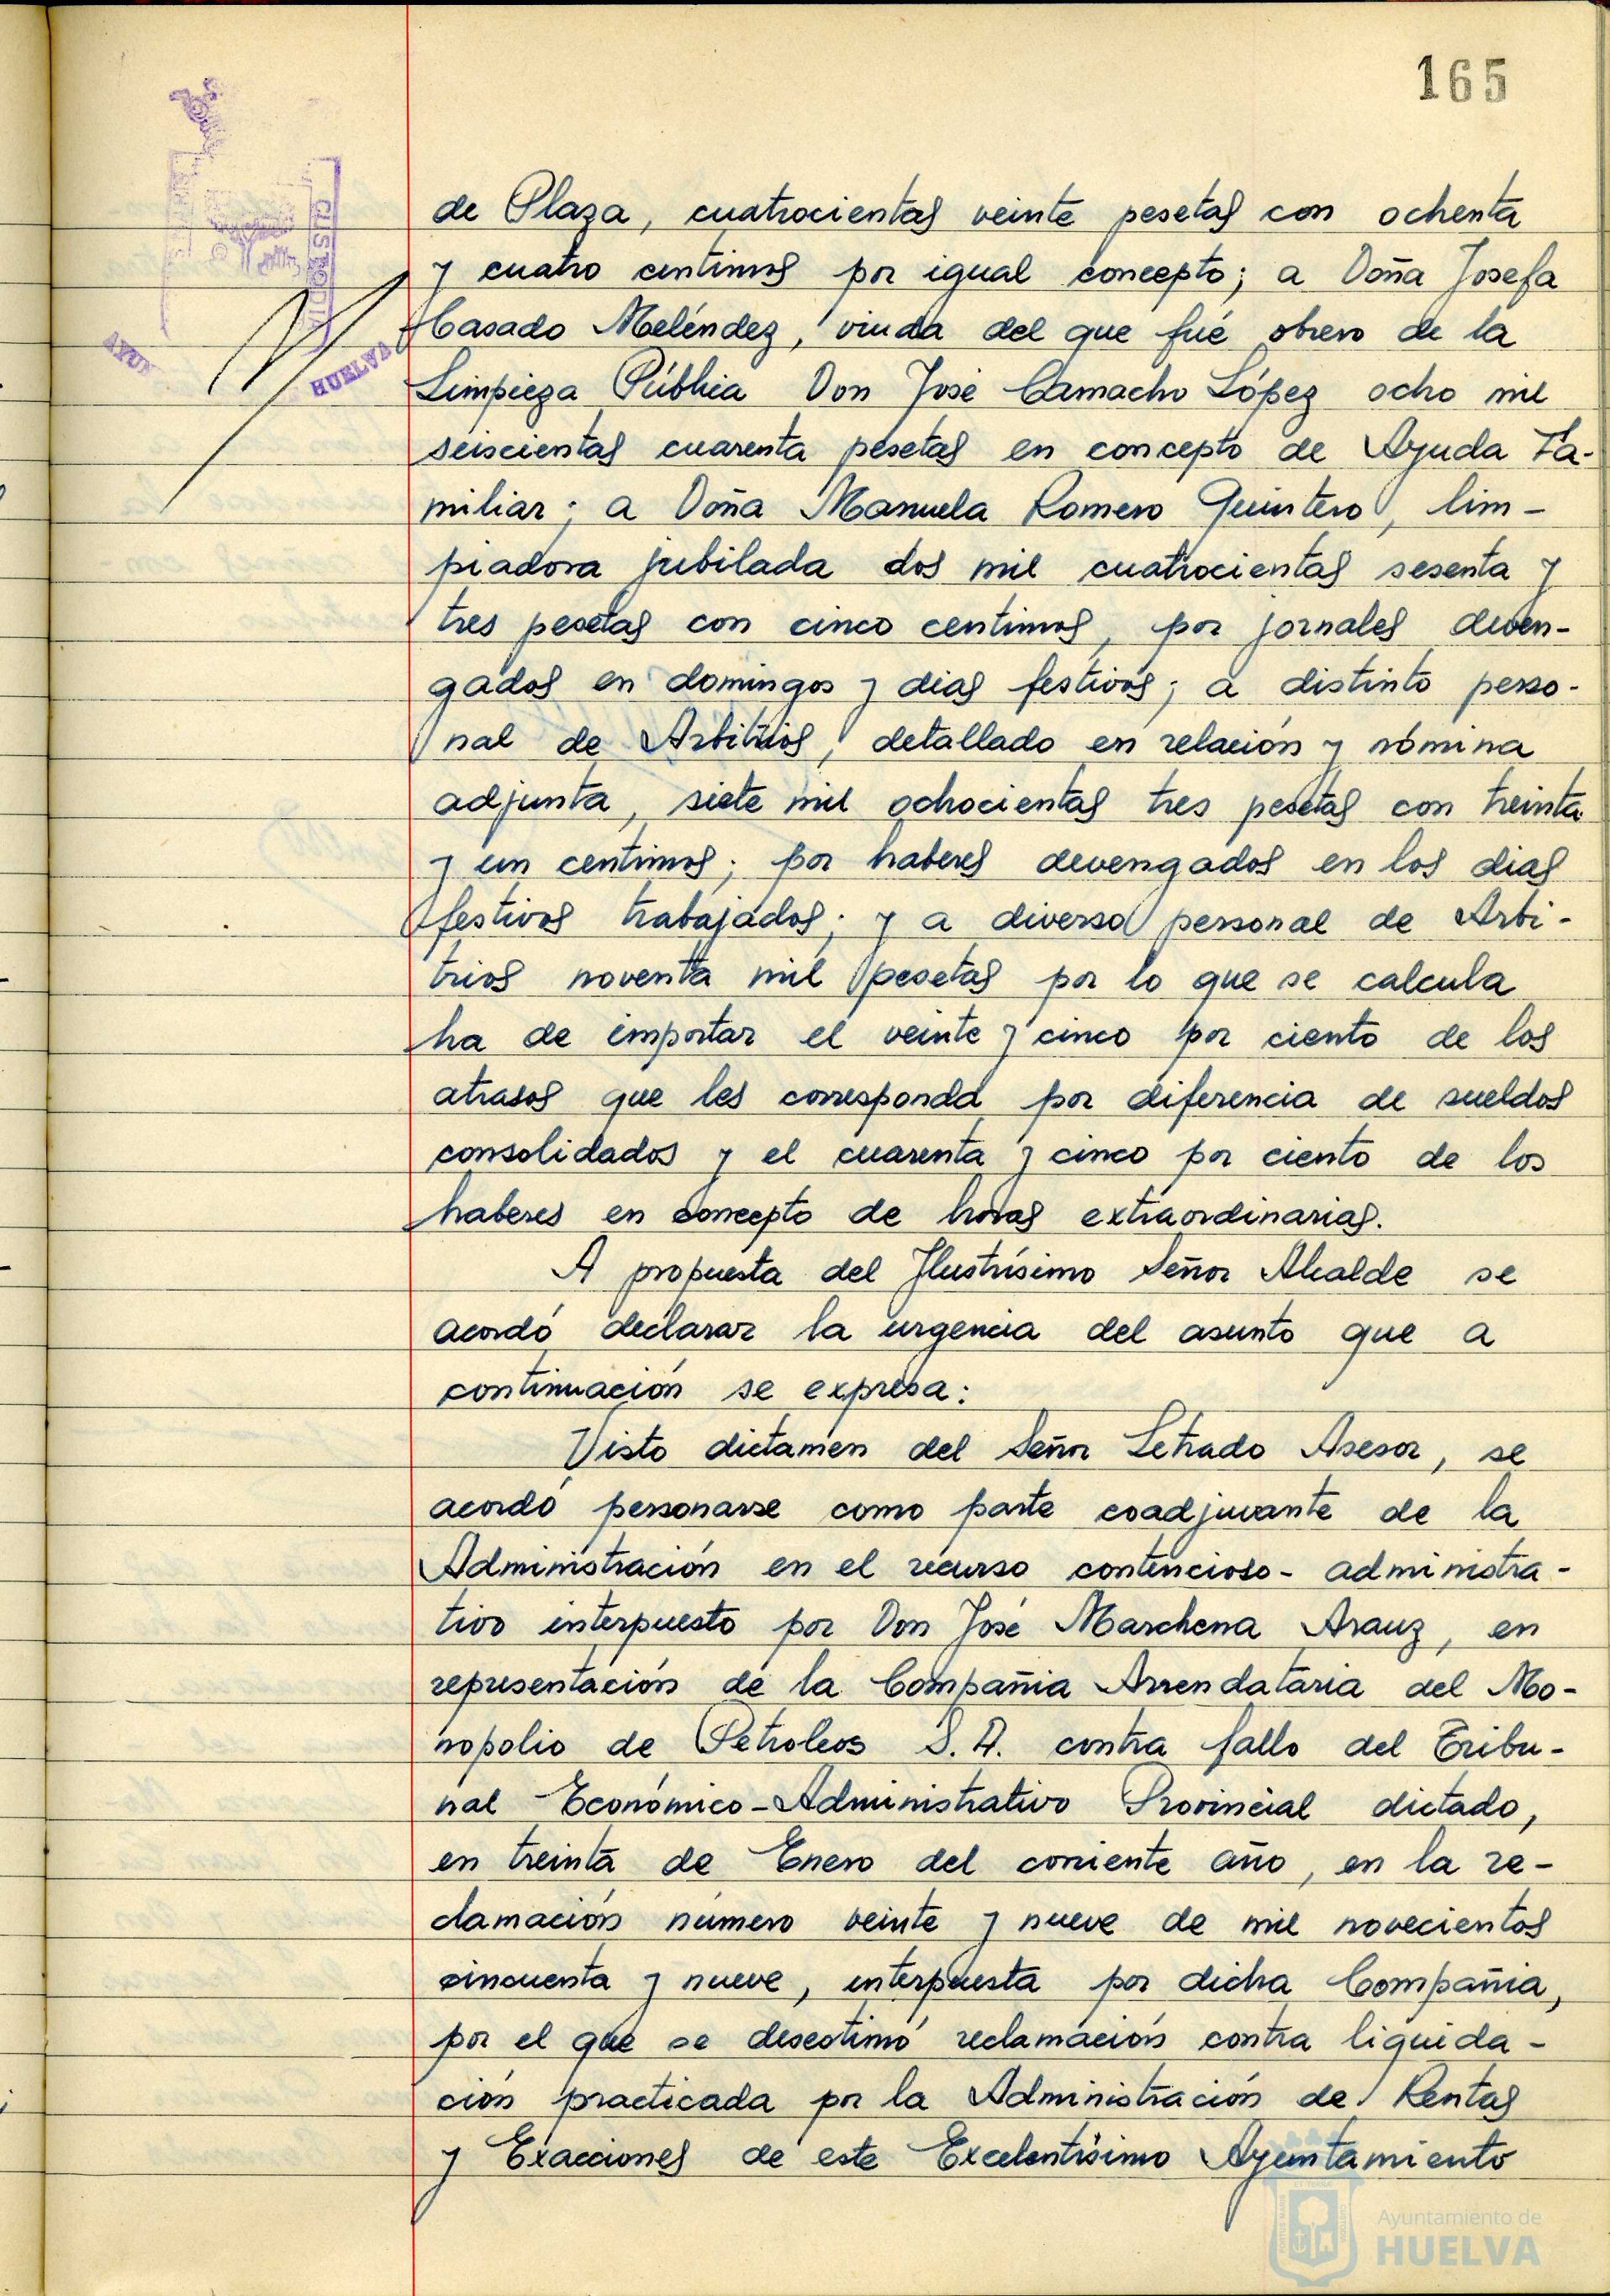 165
CUSTODIA
AYUN
HUELVA
de Plaza, cuatrocientas veinte pesetas con ochenta
y cuatro centimos por igual concepto; a Doña Josefa
Casado Meléndez, viuda del que fué obrero de la
Limpieza Pública Don José Camacho López ocho mil
seiscientas cuarenta pesetas en concepto de Ayuda Fa-
miliar; a Doña Manuela Romero Quintero, lim-
piadora jubilada dos mil cuatrocientas sesenta y
tres pesetas con cinco centimos, por jornales deven-
gados en domingos y dias festivos; a distinto perso-
nal de Arbitrios, detallado en relación y nómina
adjunta, siete mil ochocientas tres pesetas con treinta
y un centimos; por haberes devengados en los dias
festivos trabajados; y a diverso personal de Arbi-
trios noventa mil pesetas por lo que se calcula
ha de importar el veinte y cinco por ciento de los
atrasos que les corresponda por diferencia de sueldos
consolidados y el cuarenta y cinco por ciento de los
haberes en concepto de horas extraordinarias.
A propuesta del Ilustrísimo Señor Alcalde se
acordó declarar la urgencia del asunto que a
continuación se expresa:
Visto dictamen del Señor Letrado Asesor, se
acordó personarse como parte coadjuvante de la
Administración en el recurso contencioso- administra-
tivo interpuesto por Don José Marchena Arauz, en
representación de la Compañia Arrendataria del Mo-
nopolio de Petroleos S.A. contra fallo del Tribu-
nal Económico-Administrativo Provincial dictado,
en treinta de Enero del corriente año, en la re-
clamación número veinte y nueve de mil novecientos
cincuenta y nueve, interpuesta por dicha Compañia,
por el que se desestimó reclamación contra liquida-
ción practicada por la Administración de Rentas
y Exacciones de este Excelentísimo Ayuntamiento
Ayuntamiento de
HUELVA